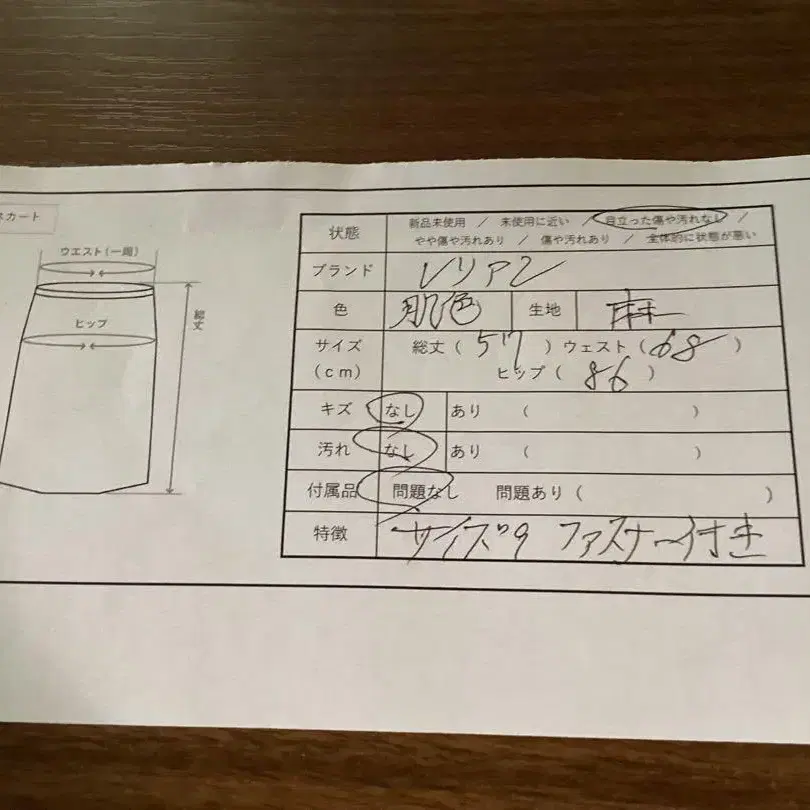 スカート
ウエスト(一周)
ヒップ
総丈
状態 新品未使用 / 未使用に近い / 目立った傷や汚れなし /
やや傷や汚れあり / 傷や汚れあり / 全体的に状態が悪い
ブランド レリアン
色 肌色 生地 麻
サイズ 総丈 ( 57 ) ウェスト ( 68 )
(cm) ヒップ ( 86 )
キズ なし あり ( )
汚れ なし あり ( )
付属品 問題なし 問題あり ( )
特徴 サイズ9 ファスナー付き